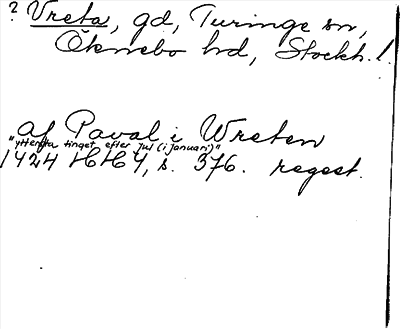 ? Vreta, gd, Turinge sn,
Öknebo hd, Stockh. l.
af Paval i Wreten
"ytterſta tinget efter jul (i januari)"
1424 HH 4, s. 376. regest.